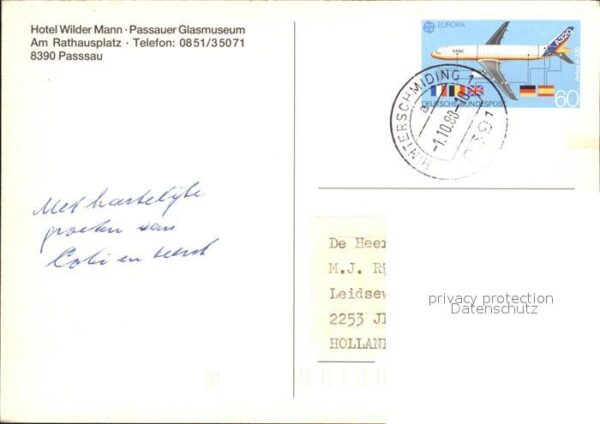 Hotel Wilder Mann · Passauer Glasmuseum
Am Rathausplatz · Telefon: 0851/35071
8390 Passsau
EUROPA
A320
DEUTSCHE BUNDESPOST
60
HINTERSCHMIDING 1
a
-1.10.88-10
8391
Met hartelijke
groeten van
en
De Heer
M.J.
Leidsew
2253
HOLLAND
privacy protection
Datenschutz